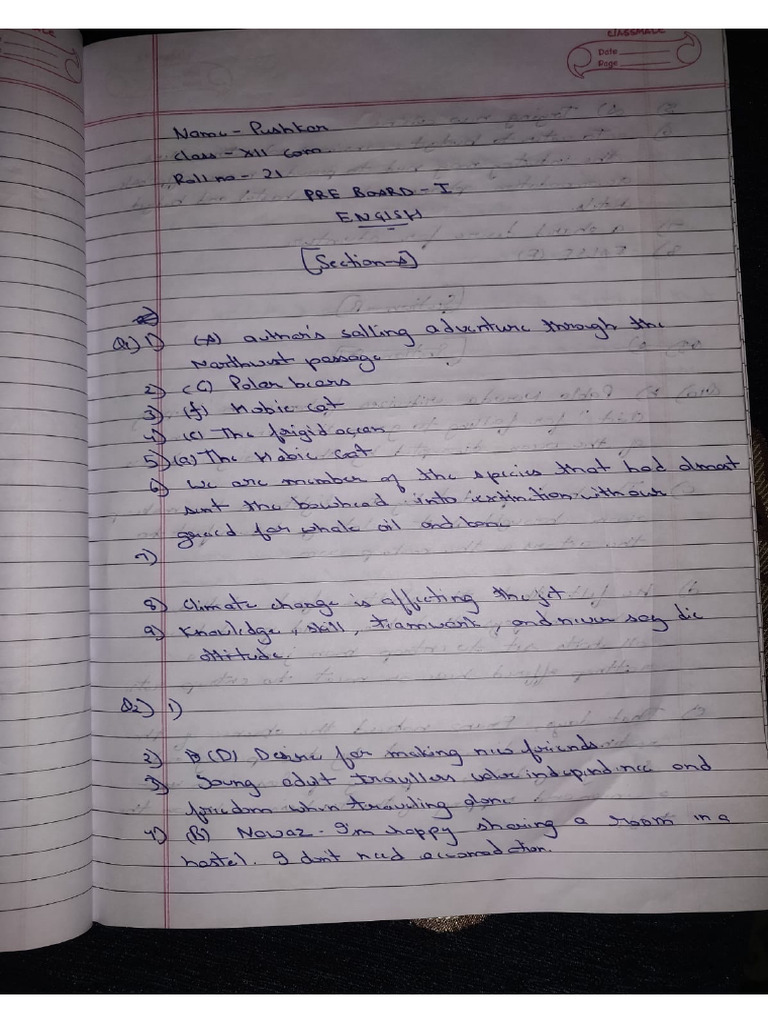 CLASSMATE
Date
Page
Name - Pushkar
Class - XII Com
Roll no - 21
PRE BOARD - I
ENGISH
[Section-A]
Q1) 1) (A) author's salling adventure through the
Northwest passage
2) (C) Polar bears
3) (f) Nobic Cat
4) (c) The frigid ocean
5) (a) The Nobic Cat
6) We are member of the species that had almost
sent the bowhead into extintion with our
greed for whale oil and bone
7)
8) Climate change is affecting the jet
9) Knowledge, skill, teamwork, and never say die
attitude
Q2) 1)
2) (D) Desire for making new friends
3) Young adult travllers value independence and
freedom when traveling alone
4) (B) Nawaz - I'm happy sharing a room in a
hostel. I don't need accomodation.